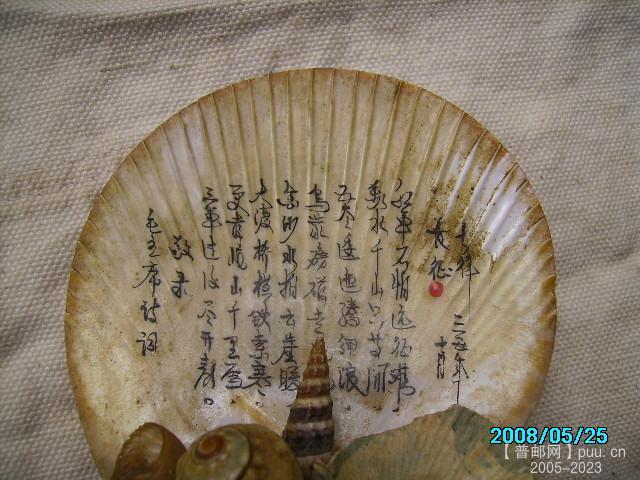 七律 三五年
長征 十月
红軍不怕远征难。
萬水千山只等闲
五岭逶迤腾细浪。
乌蒙磅礴走
金沙水拍云崖暖
大渡桥横铁索寒。
更喜岷山千里雪。
三軍过后尽开颜。
敬录
毛主席诗词
2008/05/25
【普邮网】puu.cn
2005-2023